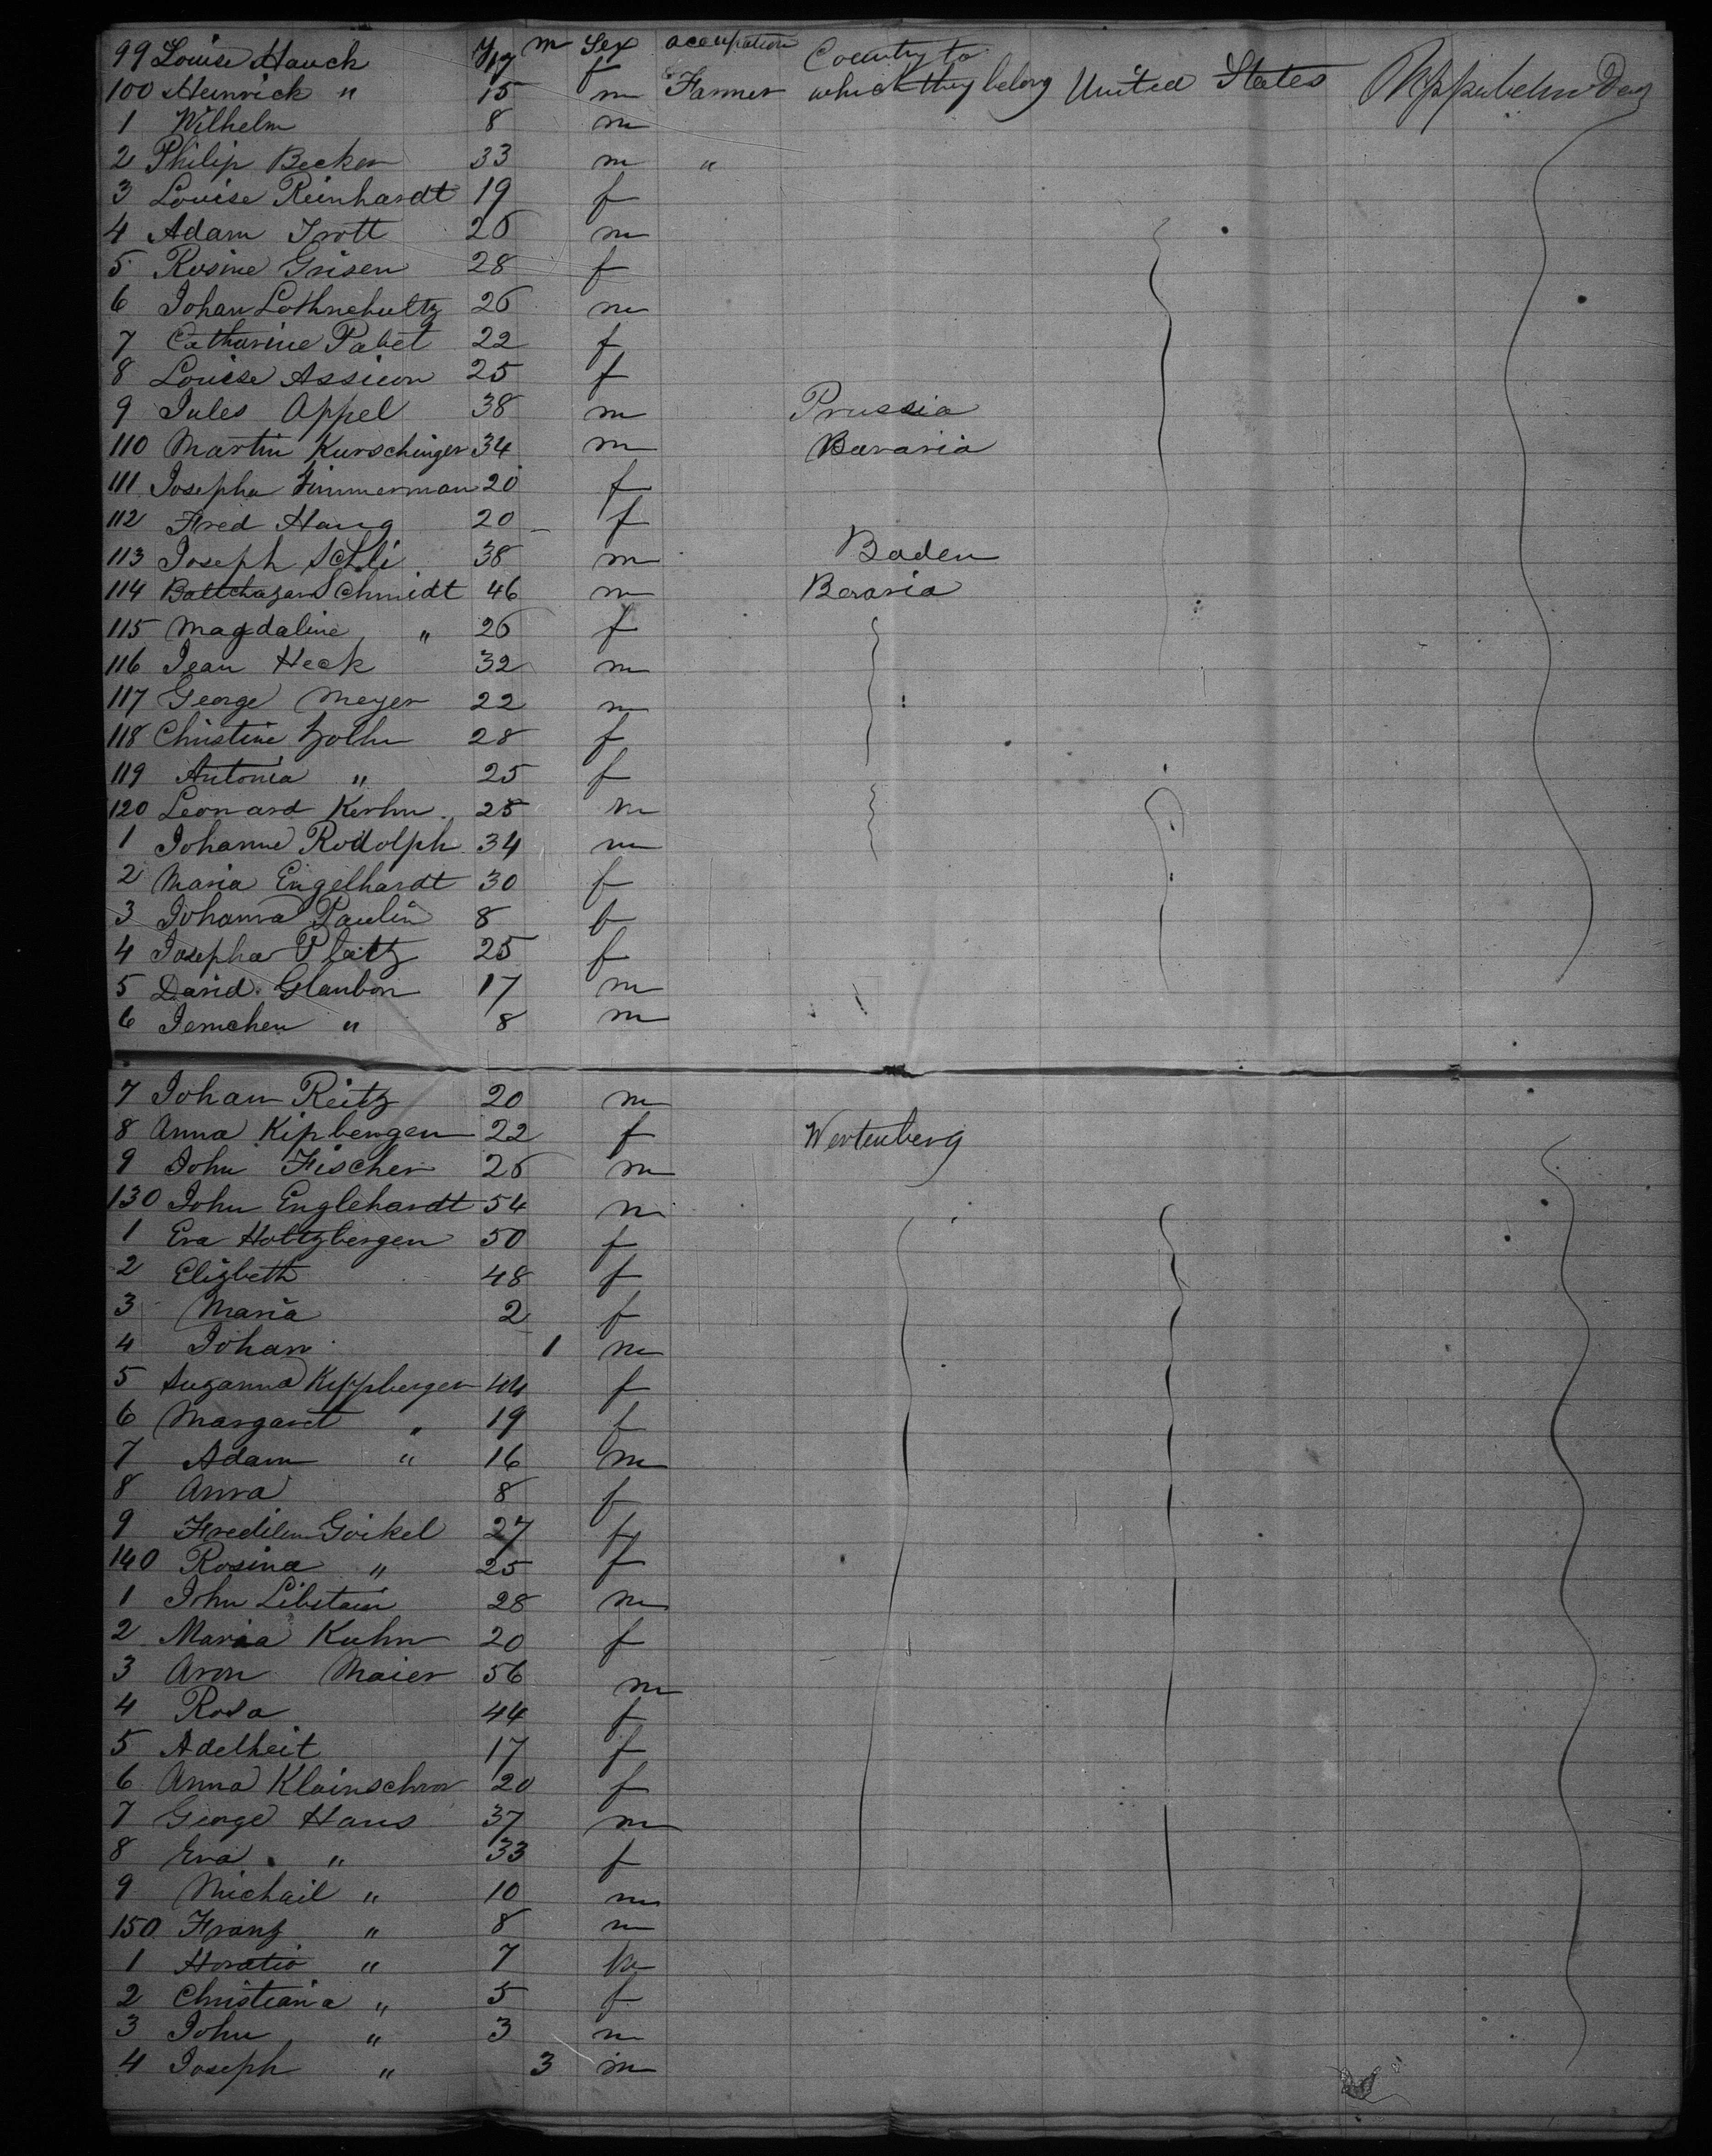 99 Louise Hauck 17 m Sex f occupation Country to
100 Heinrick " 15 m Farmer which they belong United States
1 Wilhelm 8 m
2 Philip Becker 33 m "
3 Louise Reinhardt 19 f
4 Adam Trott 26 m
5 Rosine Grisen 28 f
6 Johan Lothnehultz 26 m
7 Catharine Pabet 22 f
8 Louise Assion 25 f
9 Jules Appel 38 m Prussia
110 Martin Kurschinger 34 m Bavaria
111 Josepha Zimmerman 20 f
112 Fred Haug 20 f
113 Joseph 38 m Baden
114 Baltchazar Schmidt 46 m Bavaria
115 Magdaline " 26 f
116 Jean Heck 32 m
117 George Meyer 22 m
118 Christine 28 f
119 Antonia " 25 f
120 Leonard Kerhn 25 m
1 Johanne Rodolph 34 m
2 Maria Engelhardt 30 f
3 Johanna Paulin 8 f
4 Josepha Platz 25 f
5 David Glaubon 17 m
6 Jemchen " 8 m
7 Johan Reitz 20 m
8 Anna Kipbengen 22 f Wertenberg
9 John Fischer 26 m
130 John Englehardt 54 m
1 Eva Holtzbergen 50 f
2 Elizbeth 48 f
3 Maria 2 f
4 Johan 1 m
5 Suzanna Kippberger 44 f
6 Margaret " 19 f
7 Adam " 16 m
8 Anna 8 f
9 Goikel 27 f
140 Rosina " 25 f
1 John Libstein 28 m
2 Maria Kuhn 20 f
3 Aron Maier 56 m
4 Rosa 44 f
5 Adelheit 17 f
6 Anna Klainschror 20 f
7 George Haus 37 m
8 Eva " 33 f
9 Michail " 10 m
150 Franz " 8 m
1 Horatio " 7 m
2 Christiana " 5 f
3 John " 3 m
4 Joseph " 3 m